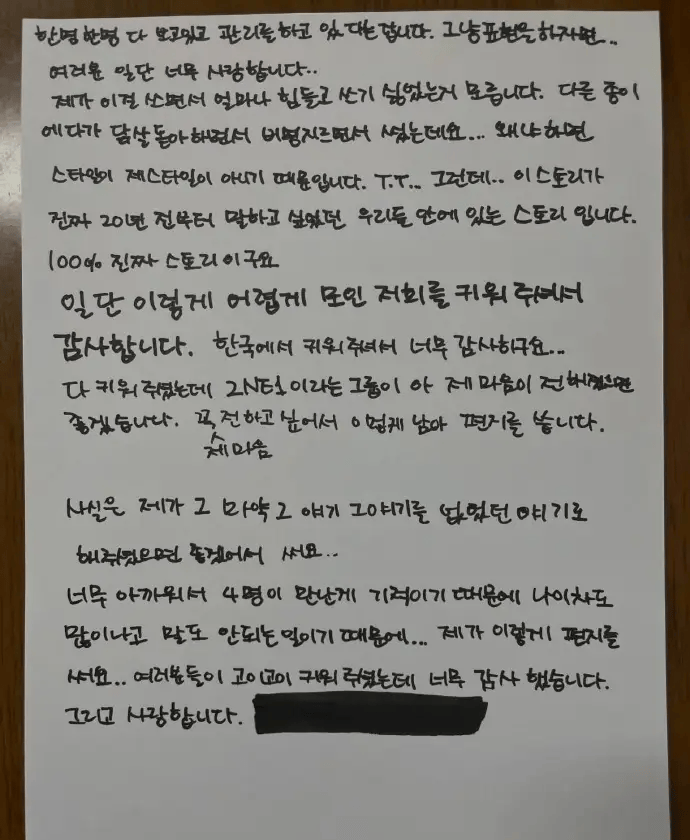 한명한명 다 보고있고 관리를하고 있다는겁니다. 그냥표현을하자면..
여러분 일단 너무 사랑합니다..
제가 이걸 쓰면서 얼마나 힘들고 쓰기 싫었는거 모릅니다. 다른 종이
에다가 닭살돋아하면서 버벅지르면서 썼는데요... 왜냐하면
스타일이 제스타일이 아니기 때문입니다. T.T... 그런데.. 이스토리가
진짜 20년 전부터 말하고 싶었던 우리들 안에 있는 스토리 입니다.
100% 진짜 스토리이구요
일단 이렇게 어렵게 모인 저희를 키워주셔서
감사합니다. 한국에서 키워주셔서 너무 감사하구요...
다 키워주셨는데 2NE1이라는 그룹이 아 제 마음이 전해졌으면
좋겠습니다. 꼭 전하고 싶어서 이렇게 남아 편지를 씁니다.
제마음
사실은 제가 그 마약 그 얘기 그이야기를 없었던 얘기로
해주셨으면 좋겠어서 써요..
너무 아까워서 4명이 만난게 기적이기 때문에 나이차도
많이나고 말도 안되는일이기 때문에... 제가 이렇게 편지를
써요.. 여러분들이 고이고이 키워주셨는데 너무 감사 했습니다.
그리고 사랑합니다.